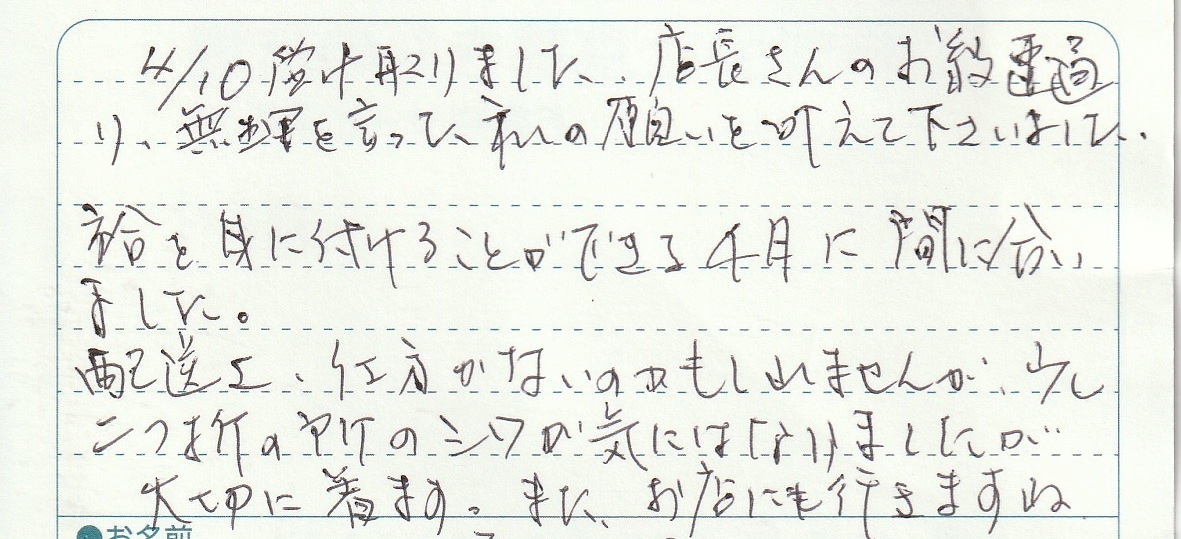 4/10 受け取りました、店長さんのお
り、無理を言って、私の願いを叶えて下さいました.
袷を身に付けることができる4月に間に合い
ました。
配送上、仕方がないのかもしれませんが、少し
二つ折りの所のシワが気にはなりましたが
大切に着ます。また、お店にも行きますね
●お名前